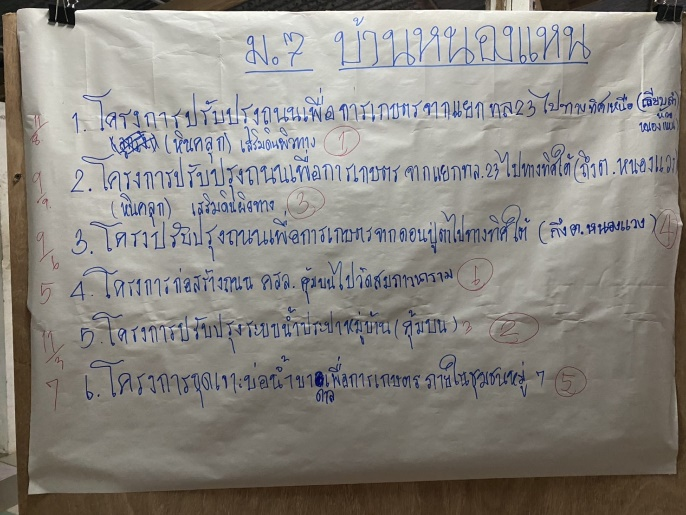 ม.7 บ้านหนองแหน
11/8 1. โครงการปรับปรุงถนนเพื่อการเกษตรจากแยก ทล23 ไปทางทิศเหนือ (เลียบลำห้วยหนองแหน)
(หินคลุก) เสริมดินผิวทาง 1
9/9 2. โครงการปรับปรุงถนนเพื่อการเกษตร จากแยกทล.23 ไปทางทิศใต้ (ถึงต.หนองแวง)
(หินคลุก) เสริมดินผิวทาง 3
9/6 3. โครงปรับปรุงถนนเพื่อการเกษตรจากดอนปู่ตาไปทางทิศใต้ (ถึงต.หนองแวง) 4
5 4. โครงการก่อสร้างถนน คสล. คุ้มบนไปวัด 6
11/3 5. โครงการปรับปรุงระบบน้ำประปาหมู่บ้าน (คุ้มบน) 2
7 6. โครงการขุดเจาะบ่อน้ำบาดาลเพื่อการเกษตร ภายในชุมชนหมู่ 7 5